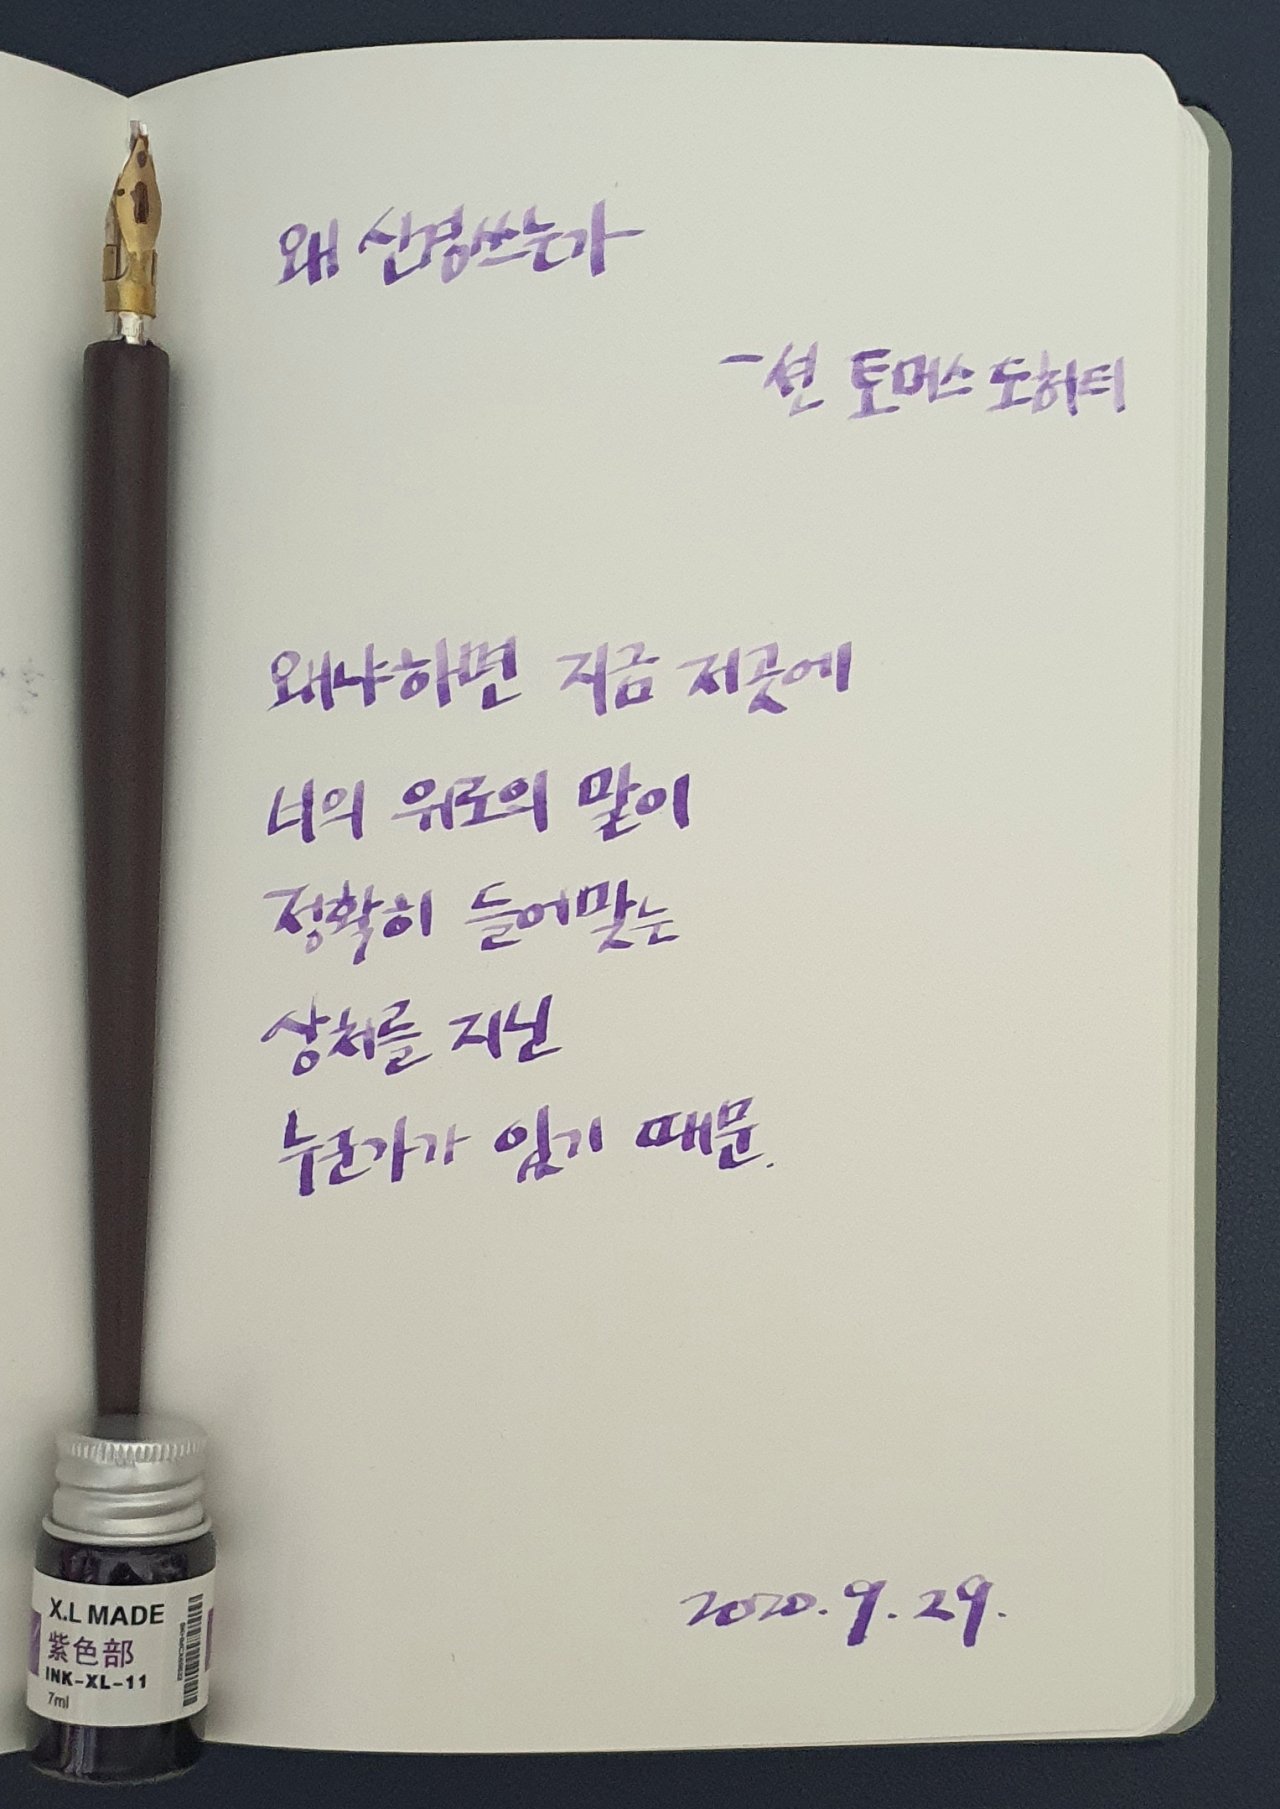 왜 신경쓰는가
- 션 토머스 도허티
왜냐하면 지금 저곳에
너의 위로의 말이
정확히 들어맞는
상처를 지닌
누군가가 있기 때문.
2020. 9. 29.
X.L MADE
紫色部
INK-XL-11
7ml